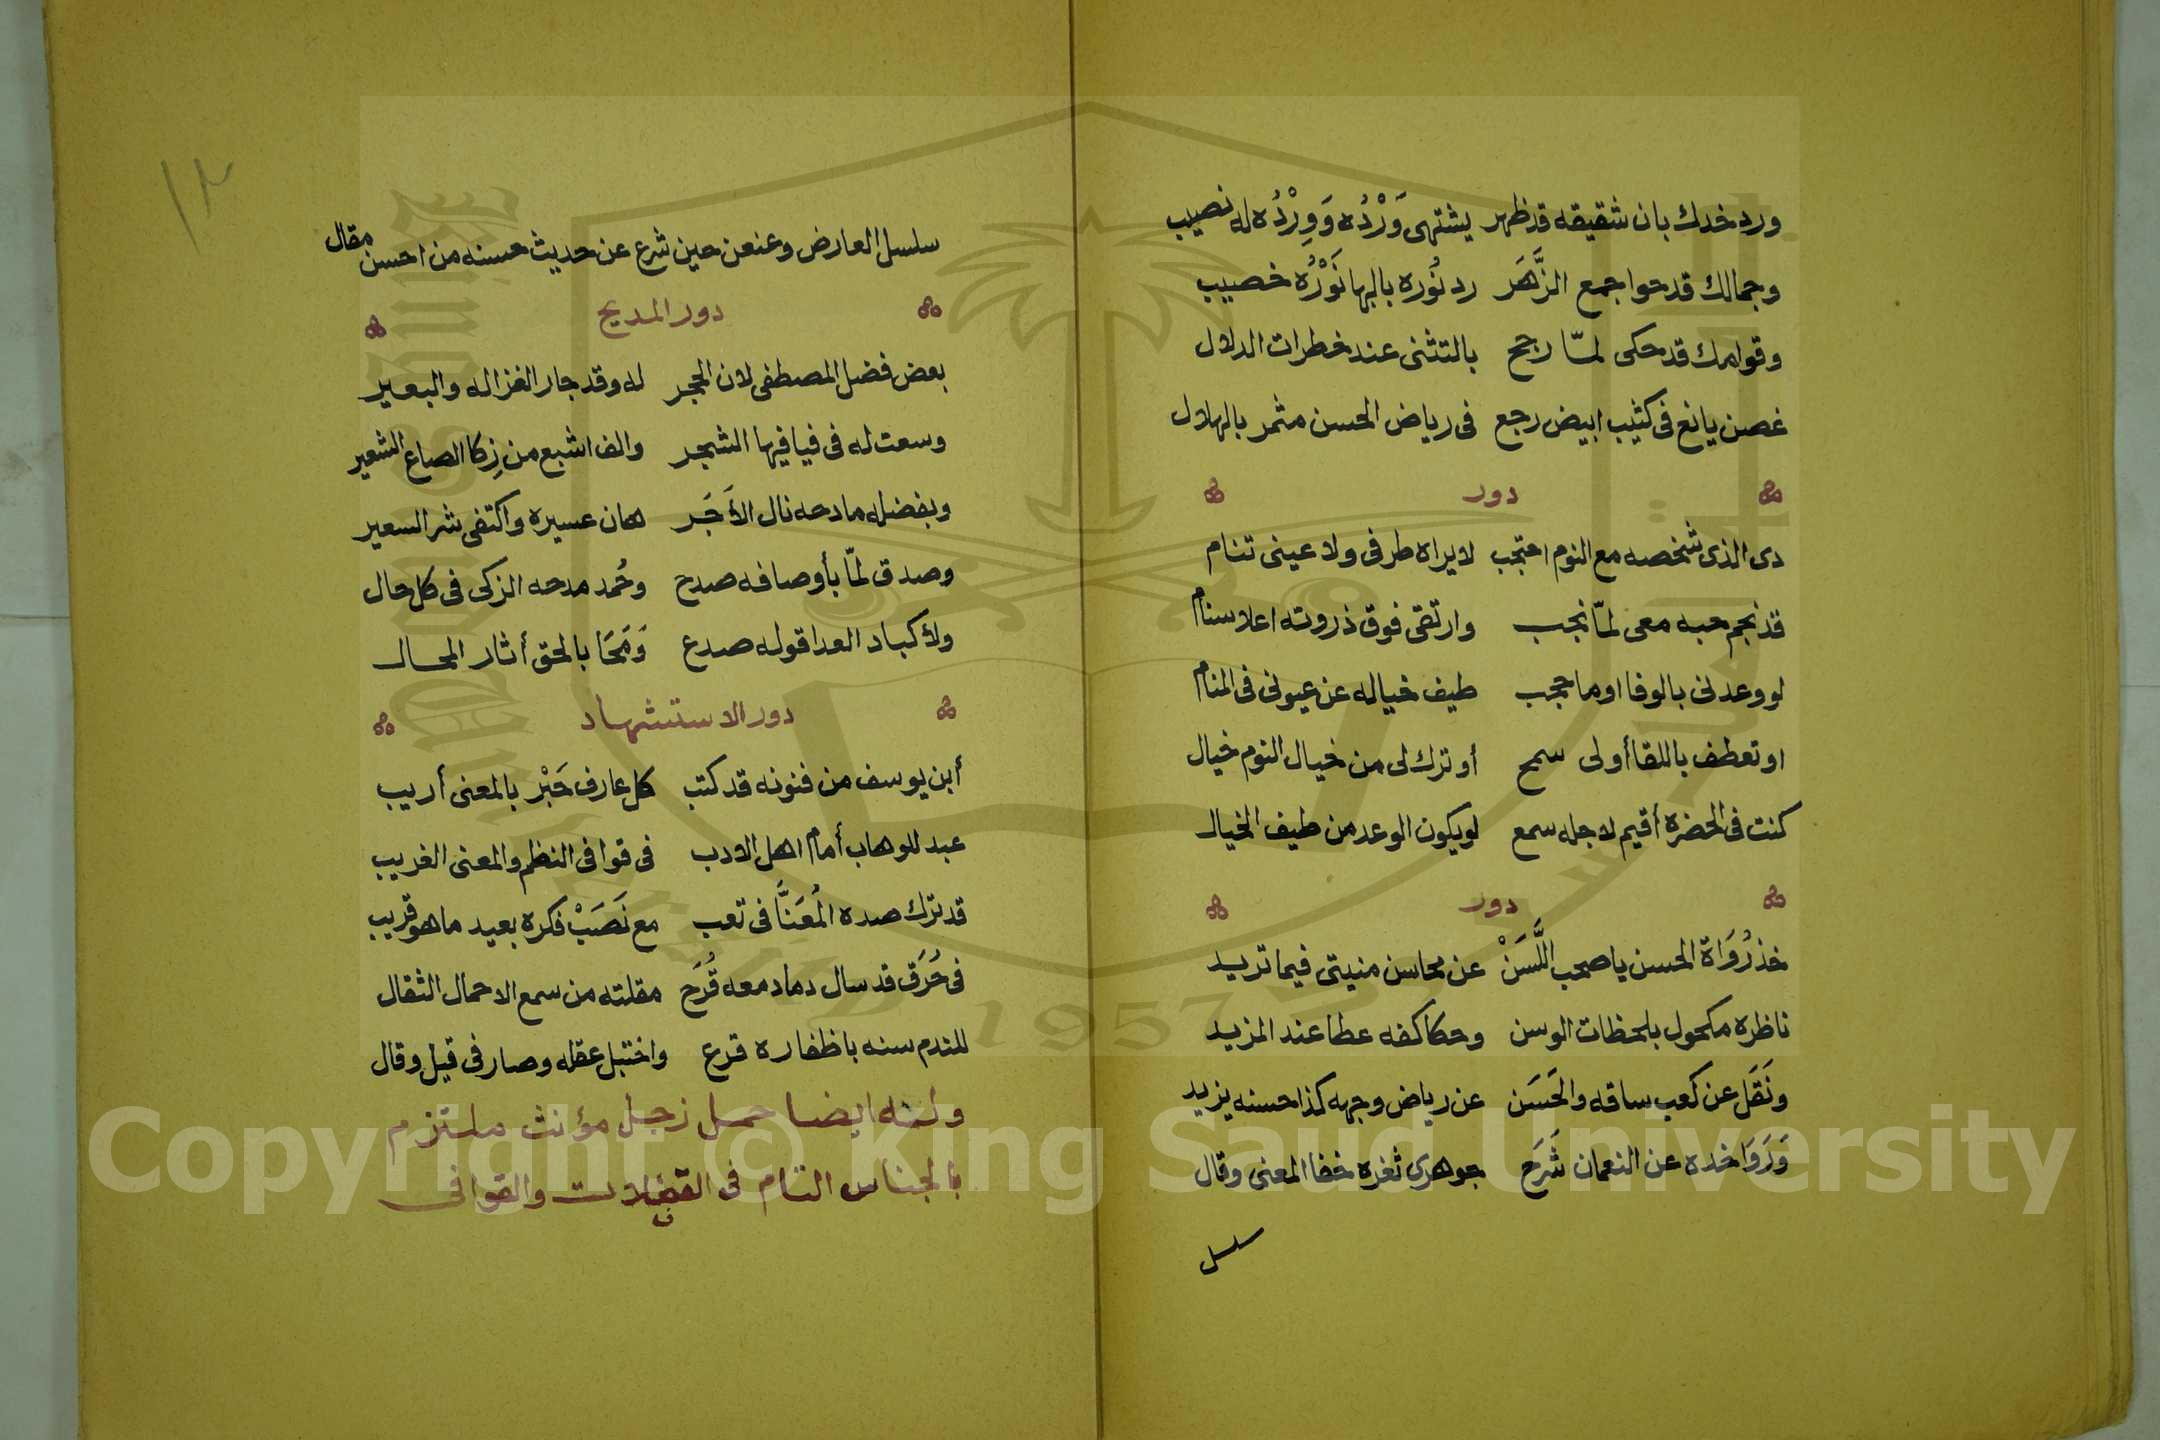 ورد خدك بان شقيقه قد ظهر يشتهى وَرْدُه وَوِرْدُه له نصيب
وجمالك قد حوا جمع الزَّهَر رد نُوره بالبها نَوْرُه خصيب
وقوامك قد حكى لمّا رجح بالتثنى عند خطرات الدلال
غصن يانع فى كثيب ابيض رجع فى رياض الحسن مثمر بالهلال
دور
دى الذى شخصه مع النوم احتجب لايراه طرفى ولا عينى تنام
قد نجم حبه معى لمّا نجب وارتقى فوق ذروته اعلا سنام
لو وعدنى بالوفا او ما حجب طيف خياله عن عيونى فى المنام
او تعطف باللقا أولى سمح أو ترك لى من خيال النوم خيال
كنت فى الحضرة أقيم لاجله سمع لو يكون الوعد من طيف الخيال
دور
خذ رُوَاة الحسن يا صحب اللَّسَنْ عن محاسن منيتى فيما تريد
ناظره مكحول بلحظات الوسن وحكا كفه عطا عند المزيد
ونَقَل عن كعب ساقه والحَسَن عن رياض وجهه كذا حسنه يزيد
وَرَوَا خده عن النعمان شَرَح جوهرى ثغره خفا المعنى وقال
سلسل
١٢
سلسل العارض وعنعن حين شرع عن حديث حسنه من احسن مقال
دور المديح
بعض فضل المصطفى لان الحجر له وقد جار الغزاله والبعير
وسعت له فى فيافيها الشجر والف اشبع من زكا الصاع الشعير
وبفضله مادحه نال الأَجَر هان عسيره واكتفى شر السعير
وصدق لمّا بأوصافه صدح وحُمد مدحه الزكى فى كل حال
ولأكباد العدا قوله صدع وَمَحَا بالحق أثار المحال
دور الاستشهاد
أبن يوسف من فنونه قد كتب كل عارف حَبْر بالمعنى أريب
عبد للوهاب أمام اهل الادب فى قوافى النظم والمعنى الغريب
قد ترك صده المُعَنَّا فى تعب مع نَصَبْ فكره بعيد ما هو قريب
فى حُرَق قد سال دما دمعه قُرَح مقلته من سمع الاحمال الثقال
للندم سنه باظفاره قرع واختبل عقله وصار فى قيل وقال
وله ايضا حمل زجل مؤنث ملتزم
بالجناس التام فى والقوافى
Copyright © King Saud University
1957